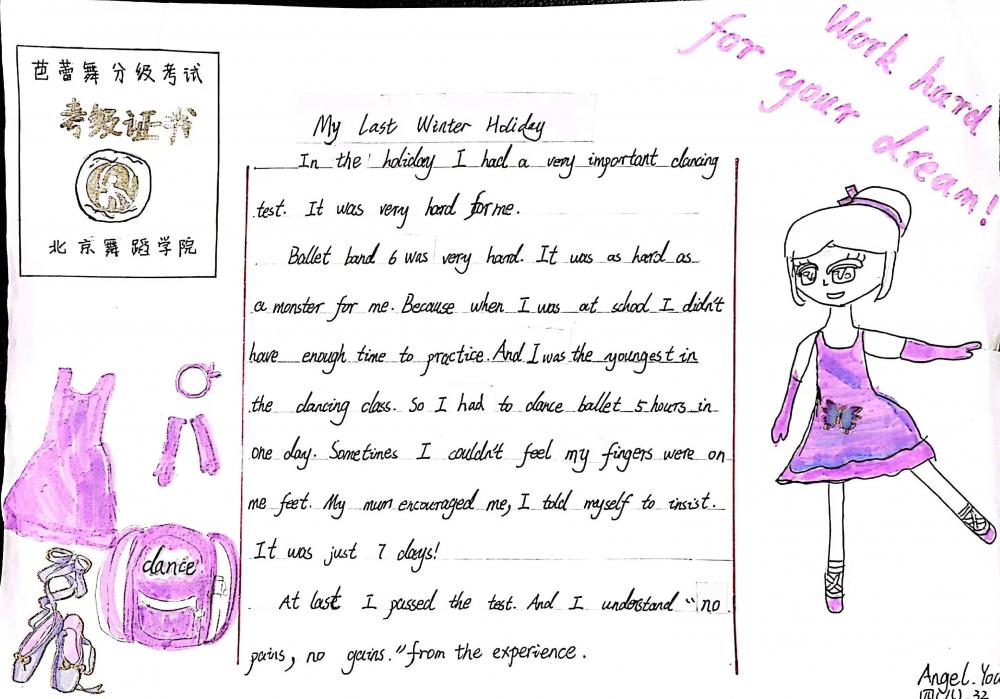 芭蕾舞分级考试
考级证书
北京舞蹈学院
Work hard
for your dream!
My Last Winter Holiday
In the holiday I had a very important dancing
test. It was very hard for me.
Ballet band 6 was very hard. It was as hard as
a monster for me. Because when I was at school I didn't
have enough time to practice. And I was the youngest in
the dancing class. So I had to dance ballet 5 hours in
one day. Sometimes I couldn't feel my fingers were on
me feet. My mum encouraged me, I told myself to insist.
It was just 7 days!
At last I passed the test. And I understand "no
pains, no gains." from the experience.
dance
Angel.